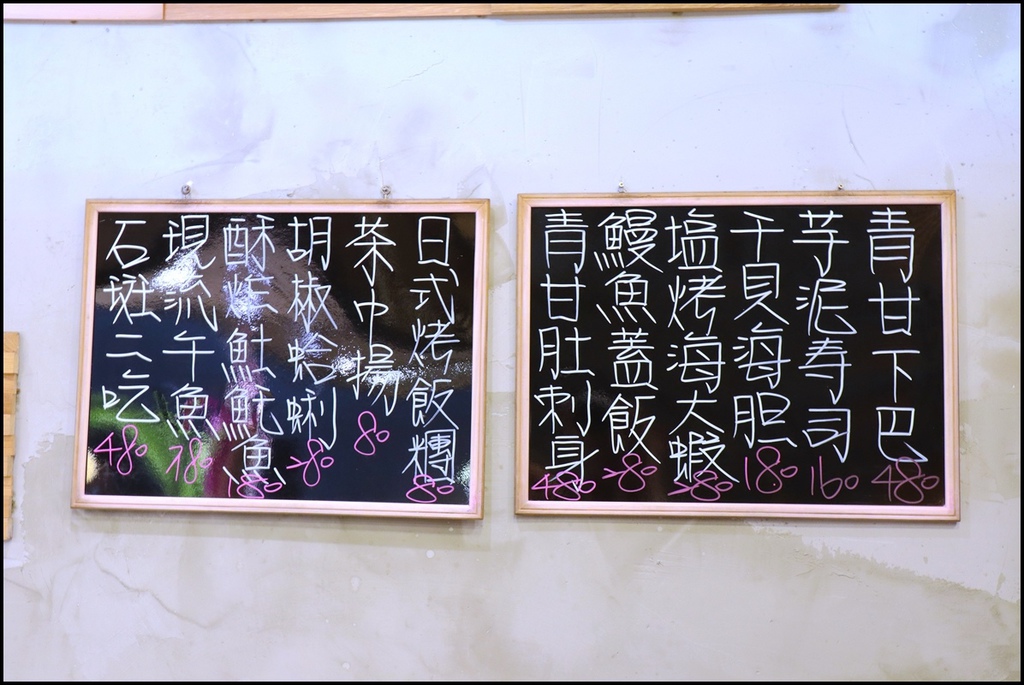 青甘下巴 480
芋泥寿司 160
干貝海胆 180
塩烤海大蝦 280
鰻魚蓋飯 280
青甘肚刺身 480
日式烤飯糰 80
茶巾揚 80
胡椒蛤蜊 280
酥炸魟魠魚 180
現流午魚 280
石斑二吃 480